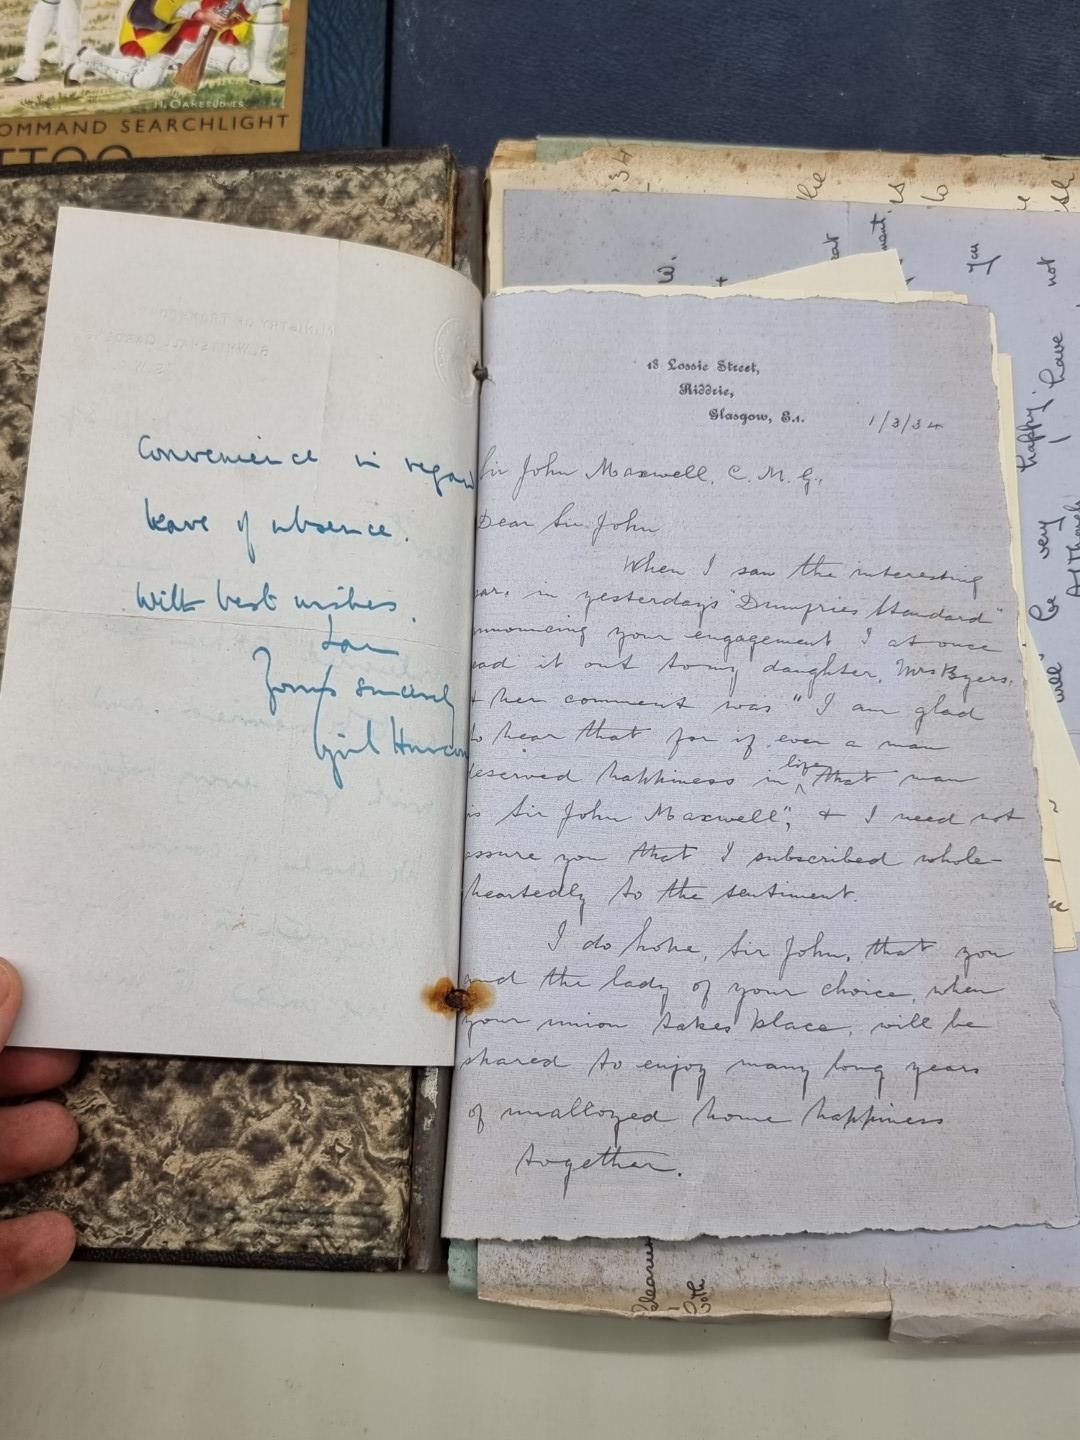 H. OAKES-JONES
OMMAND SEARCHLIGHT
TTOO
MINISTRY OF TRANSPORT
Convenience in regard
leave of absence.
With best wishes.
I am
Yours sincerely
Cyril
18 Lossie Street,
Riddrie,
Glasgow, E.1.
1/3/34
Sir John Maxwell, C. M. G.,
Dear Sir John
When I saw the interesting
par. in yesterday's "Dumfries Standard"
announcing your engagement I at once
read it out to my daughter, Mrs Byers,
& her comment was "I am glad
to hear that for if ever a man
deserved happiness in life that man
is Sir John Maxwell", & I need not
assure you that I subscribed whole-
heartedly to the sentiment.
I do hope, Sir John, that you
and the lady of your choice, when
your union takes place, will be
spared to enjoy many long years
of unalloyed home happiness
together.
very happy.
will be
have
not
Although